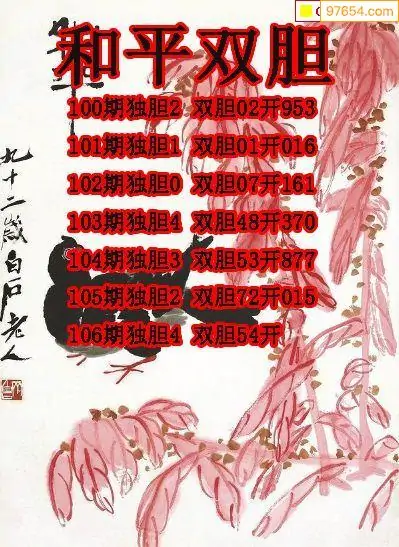 97654.com
和平双胆
100期独胆2 双胆02开953
101期独胆1 双胆01开016
102期独胆0 双胆07开161
103期独胆4 双胆48开370
104期独胆3 双胆53开877
105期独胆2 双胆72开015
106期独胆4 双胆54开
和平
九十二岁白石老人